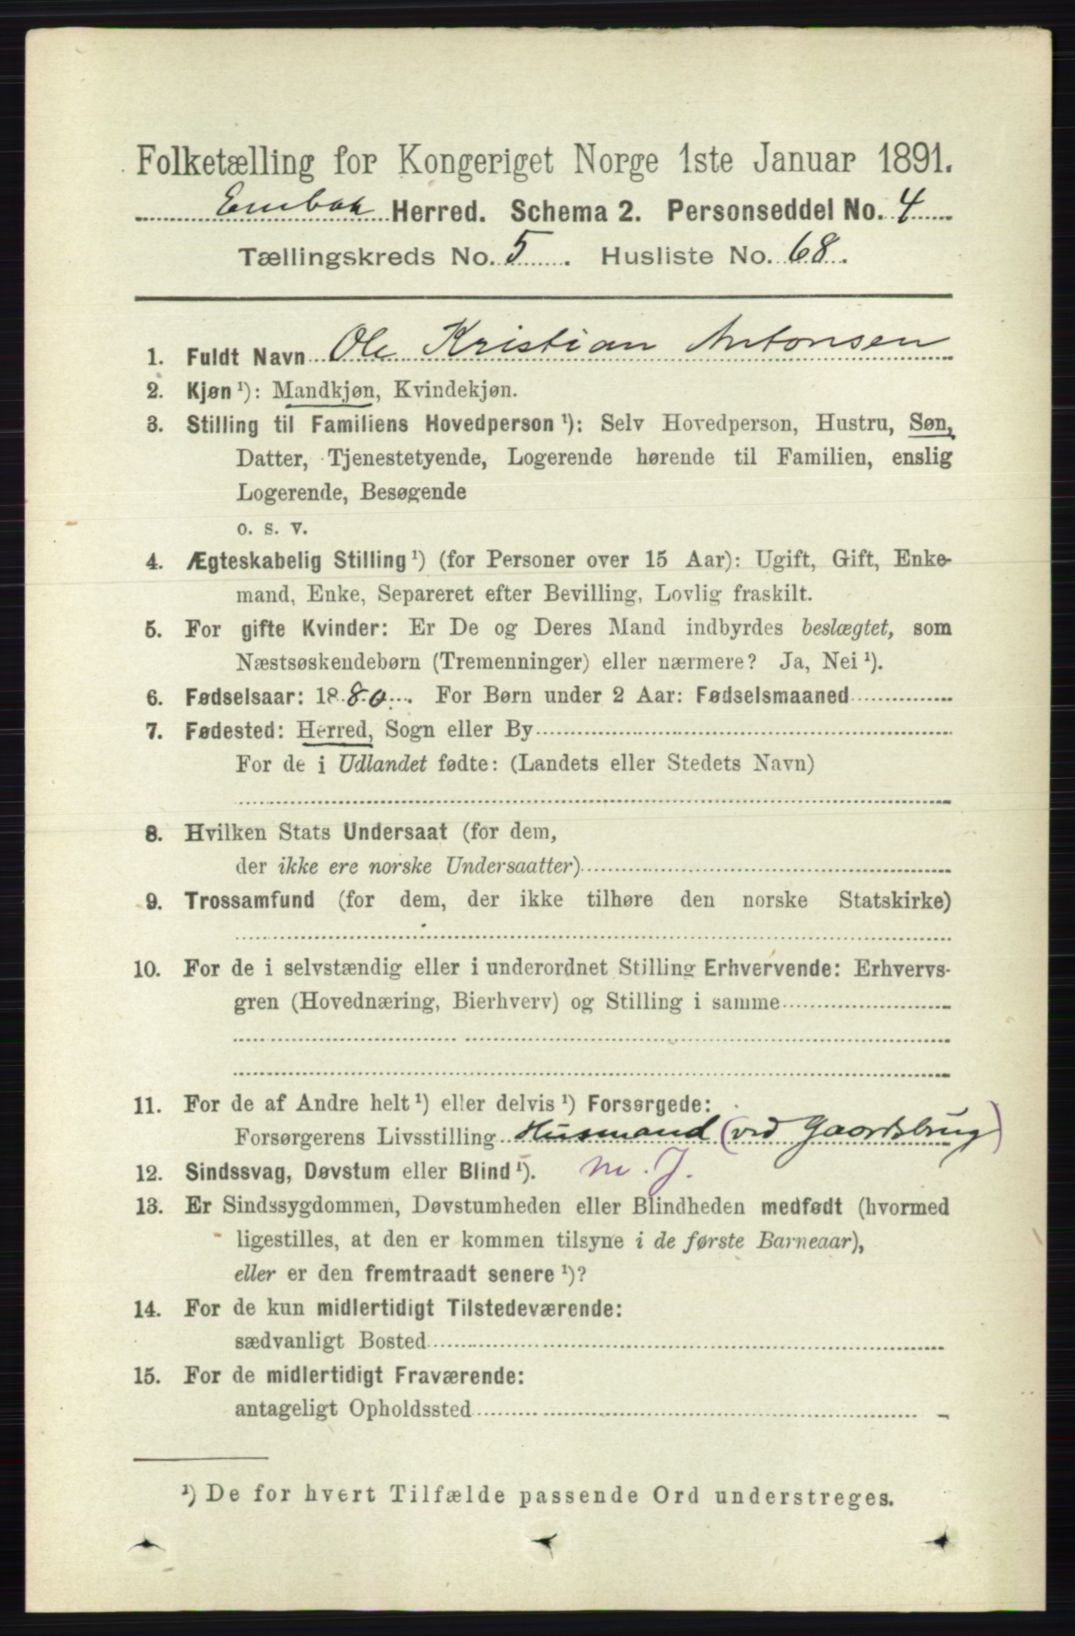 Folketælling for Kongeriget Norge 1ste Januar 1891.
Enebak Herred. Schema 2. Personseddel No. 4
Tællingskreds No. 5. Husliste No. 68.
1. Fuldt Navn Ole Kristian Antonsen
2. Kjøn ¹): Mandkjøn, Kvindekjøn.
3. Stilling til Familiens Hovedperson ¹): Selv Hovedperson, Hustru, Søn,
Datter, Tjenestetyende, Logerende hørende til Familien, enslig
Logerende, Besøgende
o. s. v.
4. Ægteskabelig Stilling ¹) (for Personer over 15 Aar): Ugift, Gift, Enke-
mand, Enke, Separeret efter Bevilling, Lovlig fraskilt.
5. For gifte Kvinder: Er De og Deres Mand indbyrdes beslægtet, som
Næstsøskendebørn (Tremenninger) eller nærmere? Ja, Nei ¹).
6. Fødselsaar: 1880. For Børn under 2 Aar: Fødselsmaaned
7. Fødested: Herred, Sogn eller By
For de i Udlandet fødte: (Landets eller Stedets Navn)
8. Hvilken Stats Undersaat (for dem,
der ikke ere norske Undersaatter)
9. Trossamfund (for dem, der ikke tilhøre den norske Statskirke)
10. For de i selvstændig eller i underordnet Stilling Erhvervende: Erhvervs-
gren (Hovednæring, Bierhverv) og Stilling i samme
11. For de af Andre helt ¹) eller delvis ¹) Forsørgede:
Forsørgerens Livsstilling Husmand (ved Gaardsbrug)
12. Sindssvag, Døvstum eller Blind ¹). m. J.
13. Er Sindssygdommen, Døvstumheden eller Blindheden medfødt (hvormed
ligestilles, at den er kommen tilsyne i de første Barneaar),
eller er den fremtraadt senere ¹)?
14. For de kun midlertidigt Tilstedeværende:
sædvanligt Bosted
15. For de midlertidigt Fraværende:
antageligt Opholdssted
¹) De for hvert Tilfælde passende Ord understreges.